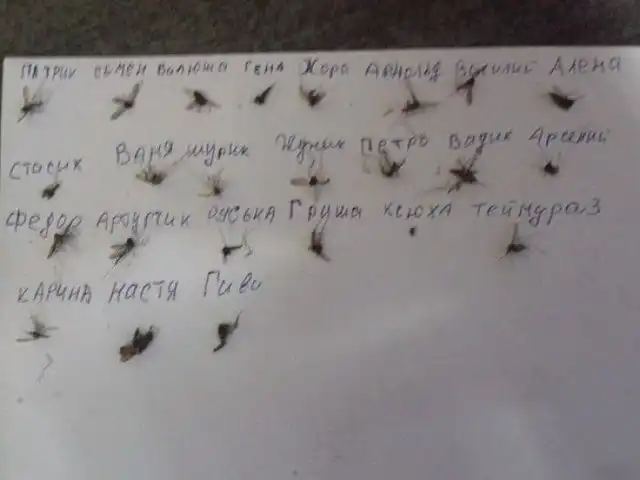 Патрик Семён Валюша Гена Жора Арнольд Василий Алена
Стасик Ваня Шурик Жуник Петро Вадик Арсений
Федор Артурчик Дуська Груша Ксюха Теймураз
Карина Настя Гиви